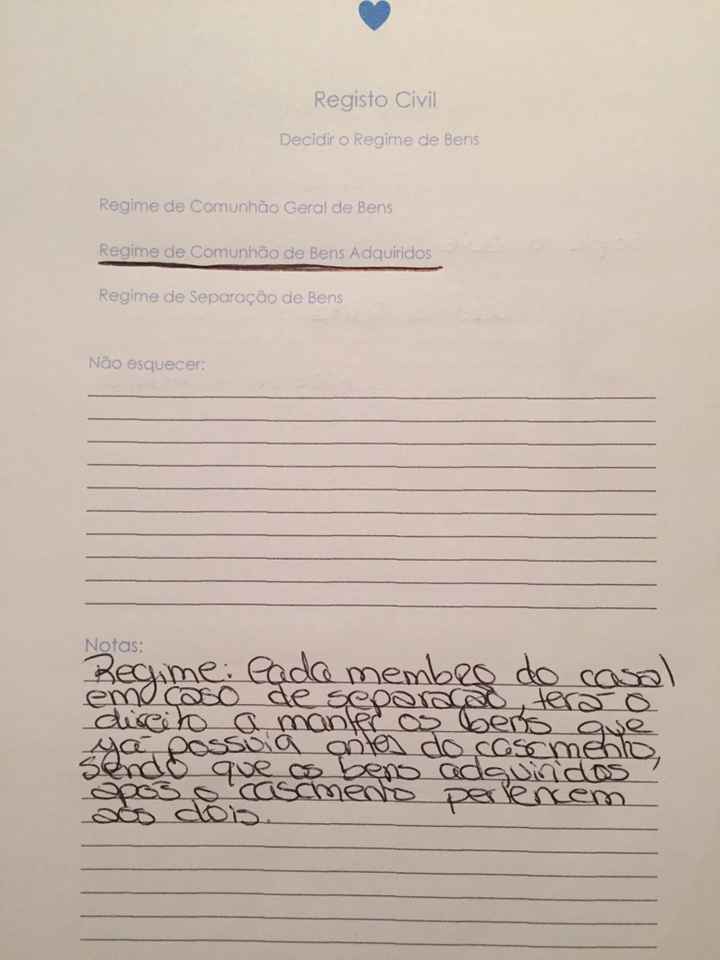 Registo Civil
Decidir o Regime de Bens
Regime de Comunhão Geral de Bens
Regime de Comunhão de Bens Adquiridos
Regime de Separação de Bens
Não esquecer:
Notas:
Regime: Cada membro do casal
em caso de separação, terá o
direito a manter os bens que
já possuia antes do casamento,
sendo que os bens adquiridos
após o casamento pertencem
aos dois.